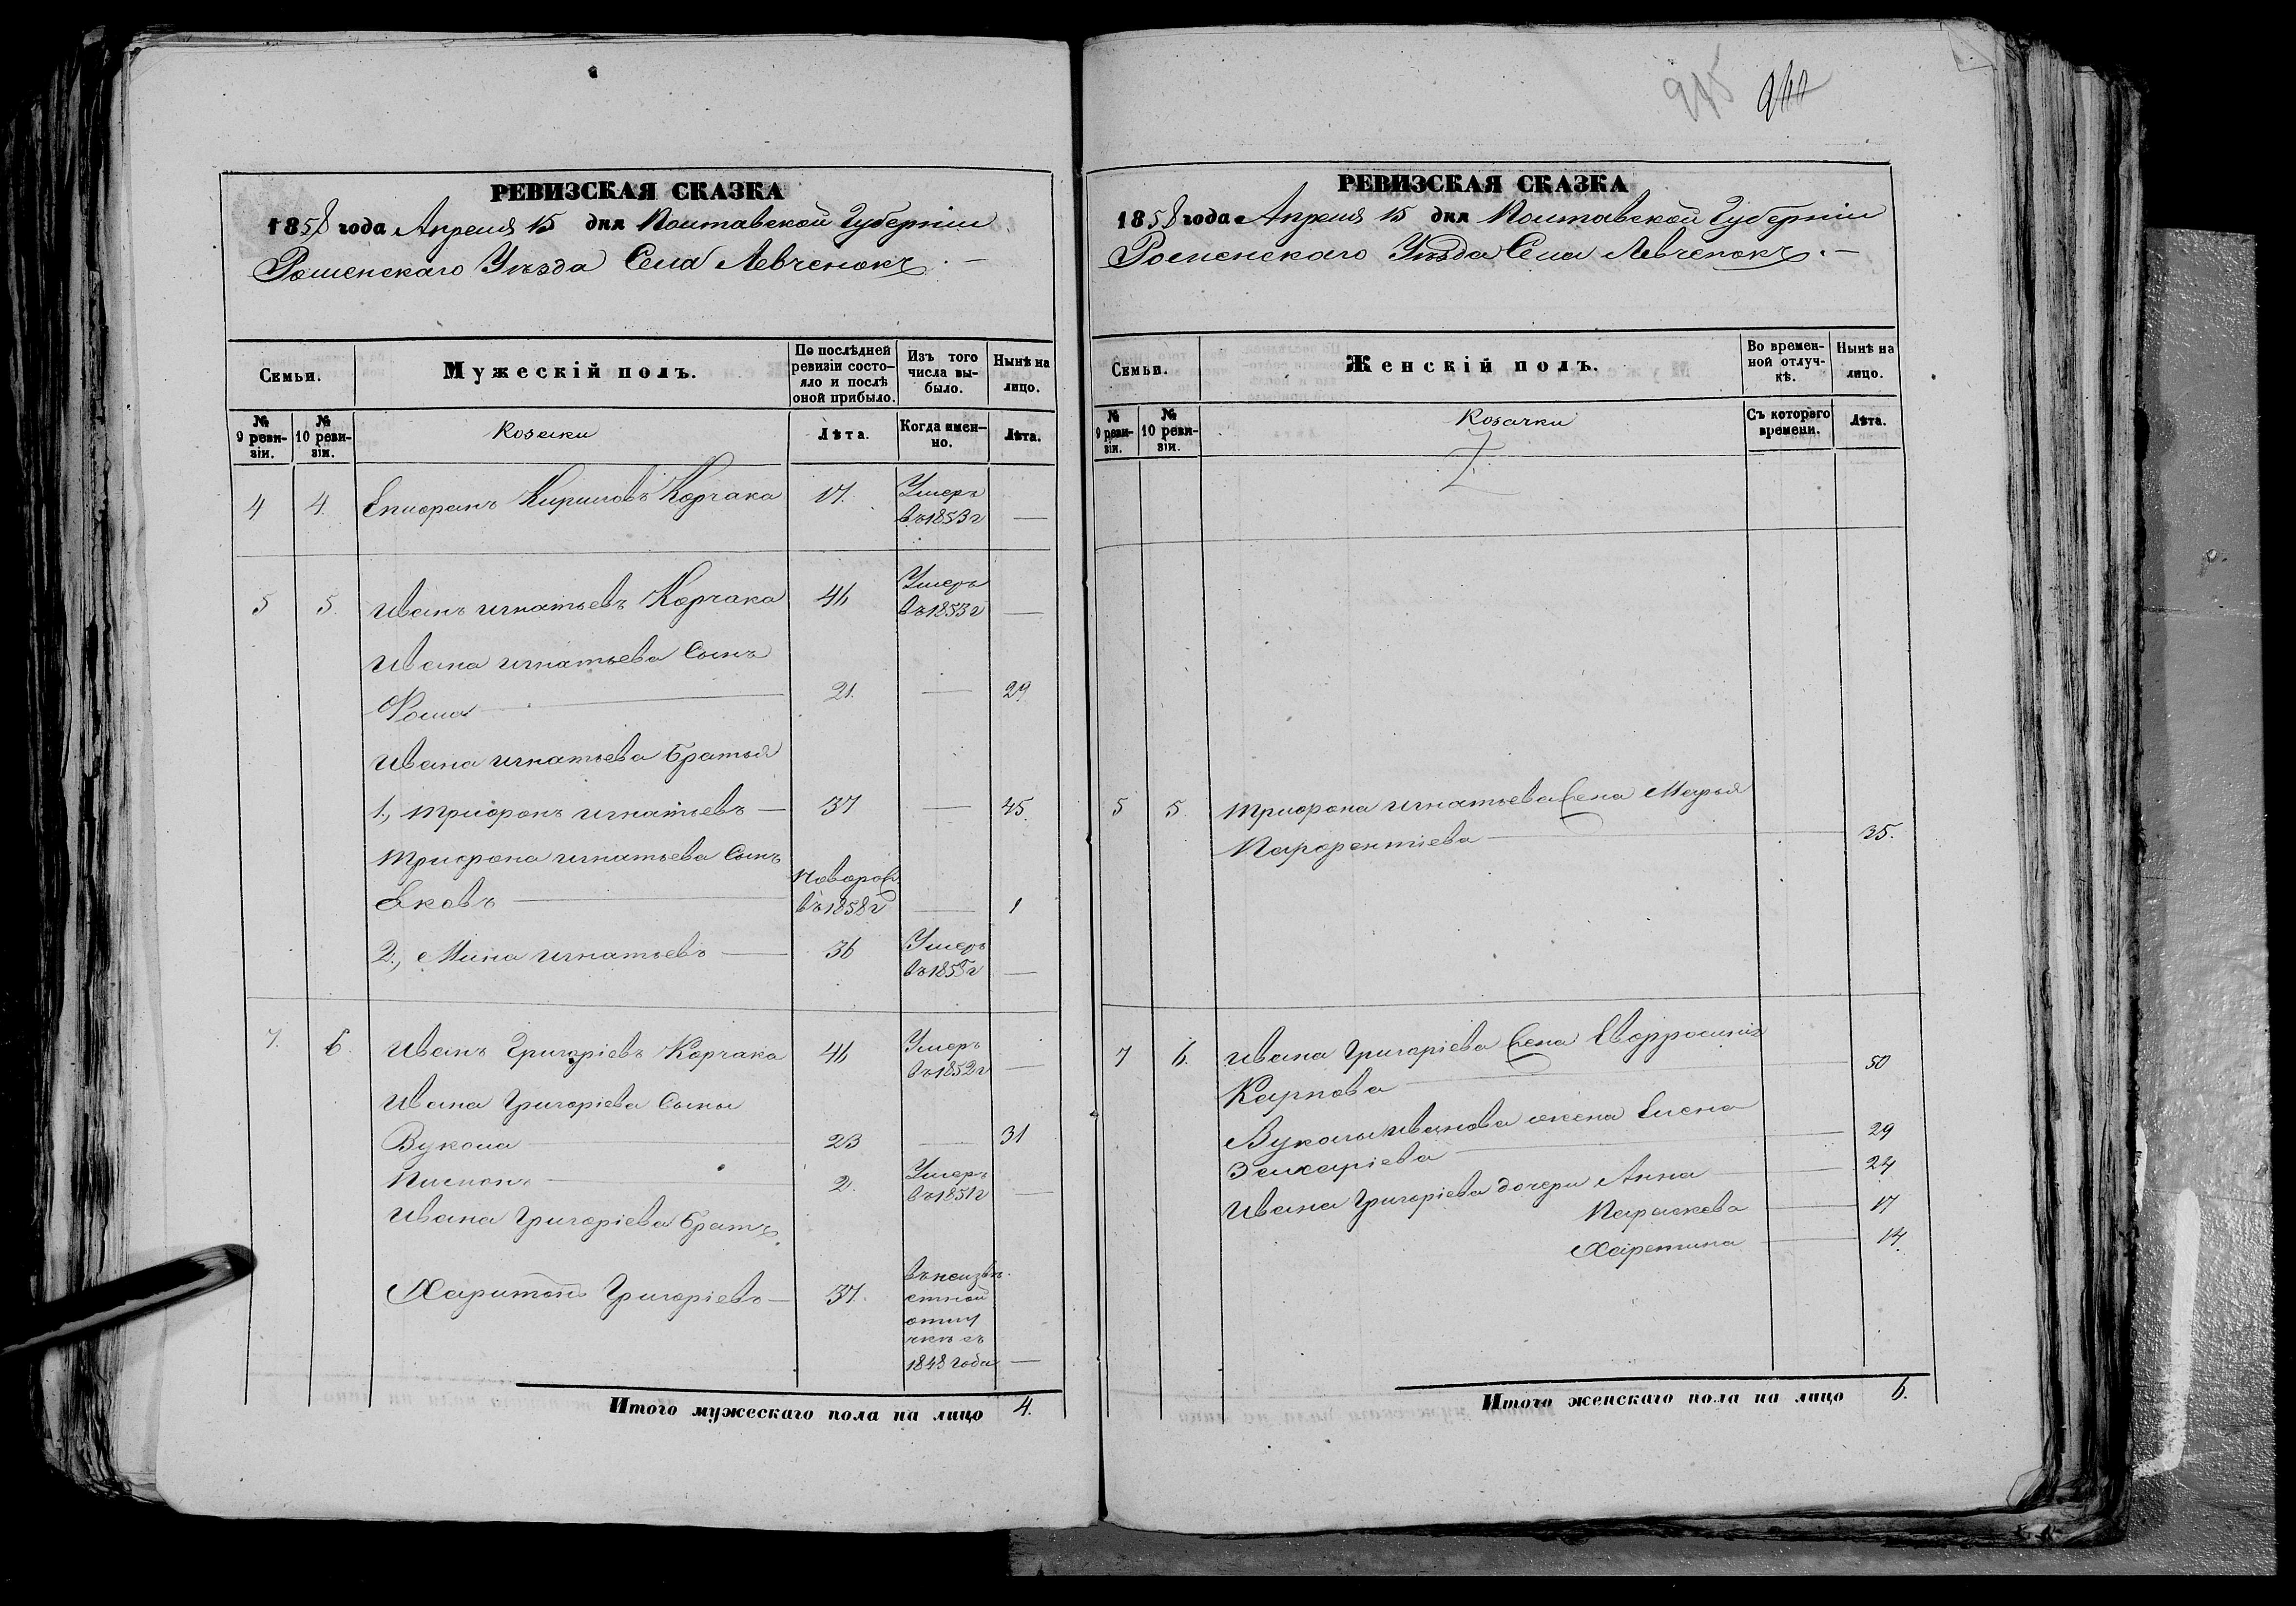 РЕВИЗСКАЯ СКАЗКА
1858 года Апреля 15 дня Полтавской Губерніи
Роменскаго Уѣзда Села Левченокъ.
Семьи.
Мужескій полъ.
По послѣдней ревизіи состояло и послѣ оной прибыло.
Изъ того числа выбыло.
Нынѣ на лицо.
№ 9 ревизіи.
№ 10 ревизіи.
Козаки
Лѣта.
Когда именно.
Лѣта.
4 4. Епифанъ Кириловъ Корчака 17. Умеръ
въ 1853 г —
5 5. Иванъ Игнатьевъ Корчака 46 Умеръ
въ 1853 г —
Ивана Игнатьева Сынъ
Фома — 21. — 29
Ивана Игнатьева Братья
1., Трифонъ Игнатьевъ — 37 — 45.
Трифона Игнатьева Сынъ
Яковъ — Новорож.
въ 1858 г — 1
2., Мина Игнатьевъ — 36 Умеръ
въ 1855 г —
7. 6. Иванъ Григоріевъ Корчака 46 Умеръ
въ 1852 г —
Ивана Григоріева Сыны
Вукола — 23 — 31
Пимонъ — 2. Умеръ
въ 1851 г —
Ивана Григоріева Братъ
Харитонъ Григоріевъ — 37. въ неизвѣ-
стной
отлу
чкѣ съ
1848 года —
Итого мужескаго пола на лицо 4.
945
РЕВИЗСКАЯ СКАЗКА
1858 года Апреля 15 дня Полтавской Губерніи
Роменскаго Уѣзда Села Левченокъ. —
Семьи.
Женскій полъ.
Во временной отлучкѣ.
Нынѣ на лицо.
№ 9 ревизіи.
№ 10 ревизіи.
Козачки
Съ котораго времени.
Лѣта.
5 5. Трифона Игнатьева Жена Марья
Парфентіева — 35.
7 6. Ивана Григоріева Жена Евфросинія
Карпова — 50
Вуколы Иванова жена Елена
Захаріева — 29
Ивана Григоріева дочери Анна — 24
Параскева — 17
Харетина — 14.
Итого женскаго пола на лицо 6.